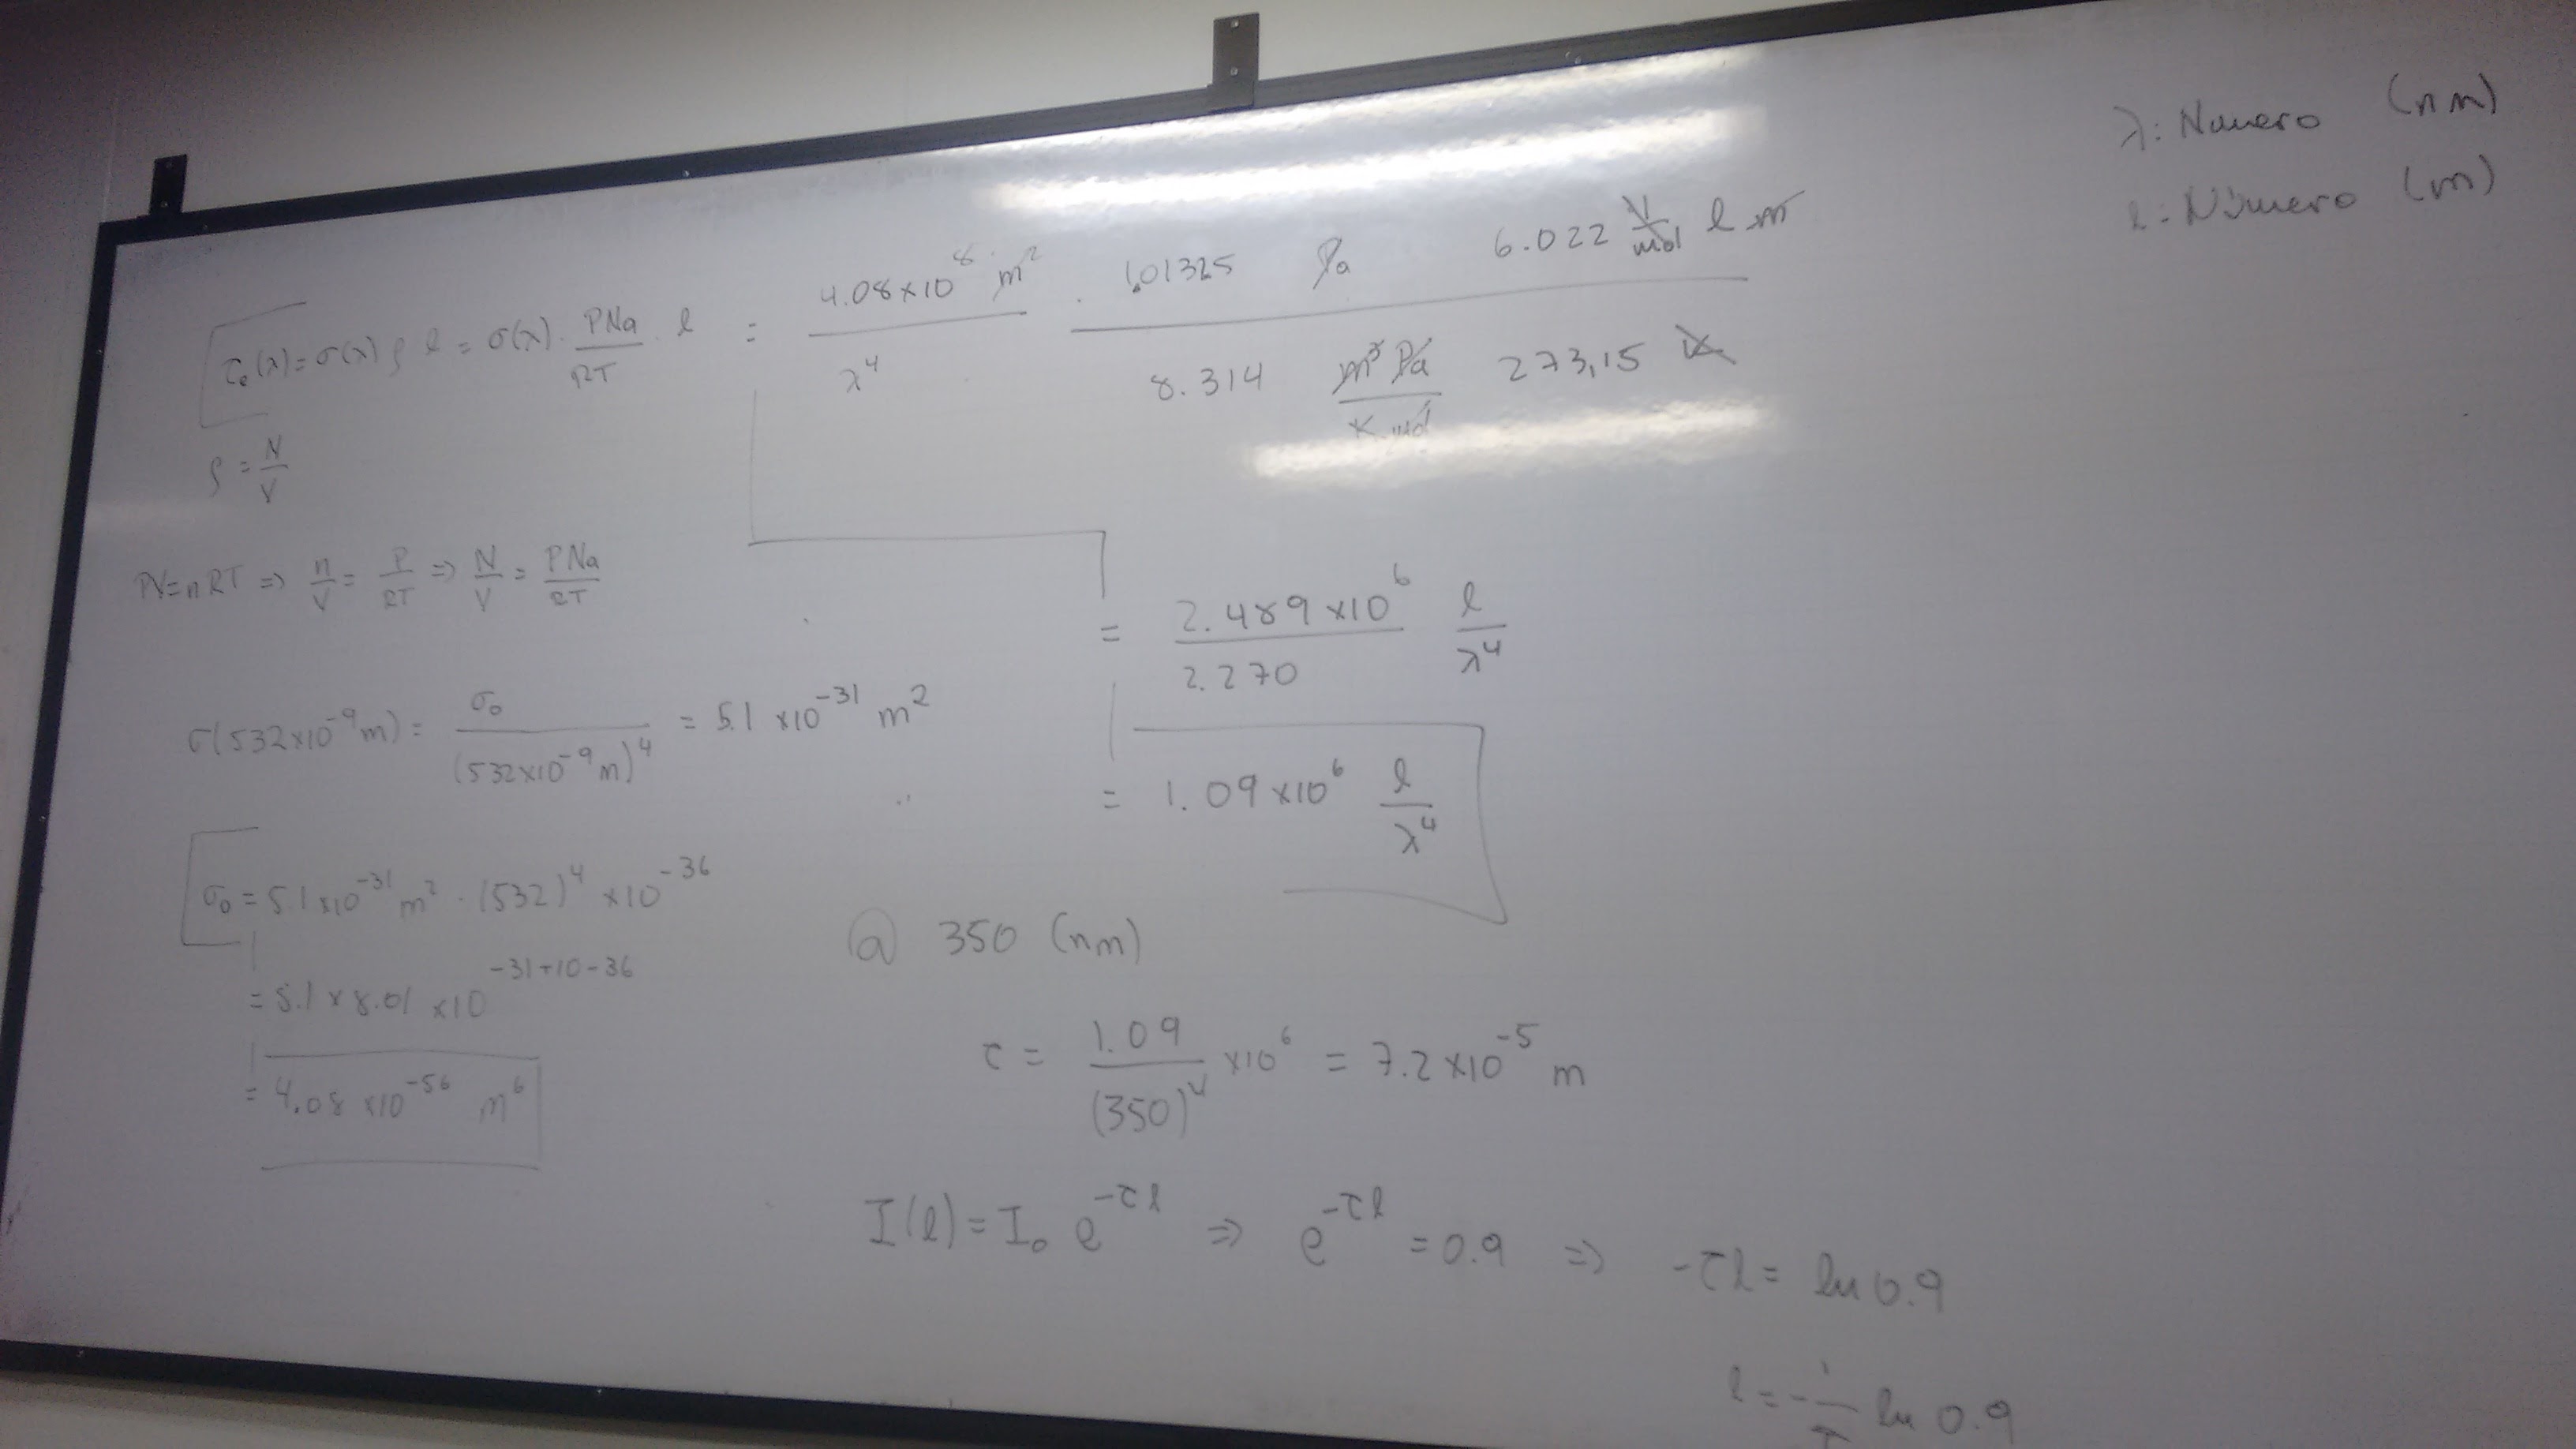 λ: Numero (nm)
l: Número (m)
τₑ(λ) = σ(λ) ρ l = σ(λ) · PNa/RT · l = 4.08×10⁸ m²/λ⁴ · 1.01325 Pa 6.022 1/mol l m / 8.314 m³Pa/K mol 273,15 K
ρ = N/V
PV=nRT ⇒ n/V = P/RT ⇒ N/V = PNa/RT
= 2.489×10⁶/2.270 l/λ⁴
σ(532×10⁻⁹m) = σ₀/(532×10⁻⁹m)⁴ = 5.1 ×10⁻³¹ m²
= 1.09×10⁶ l/λ⁴
σ₀ = 5.1×10⁻³¹ m² · (532)⁴ ×10⁻³⁶
= 5.1 × 8.01 ×10^(-31+10-36)
= 4.08 ×10⁻⁵⁶ m⁶
@ 350 (nm)
τ = 1.09/(350)⁴ ×10⁶ = 7.2×10⁻⁵ m
I(l) = I₀ e^(-τl) ⇒ e^(-τl) = 0.9 ⇒ -τl = ln 0.9
l = - 1/τ ln 0.9